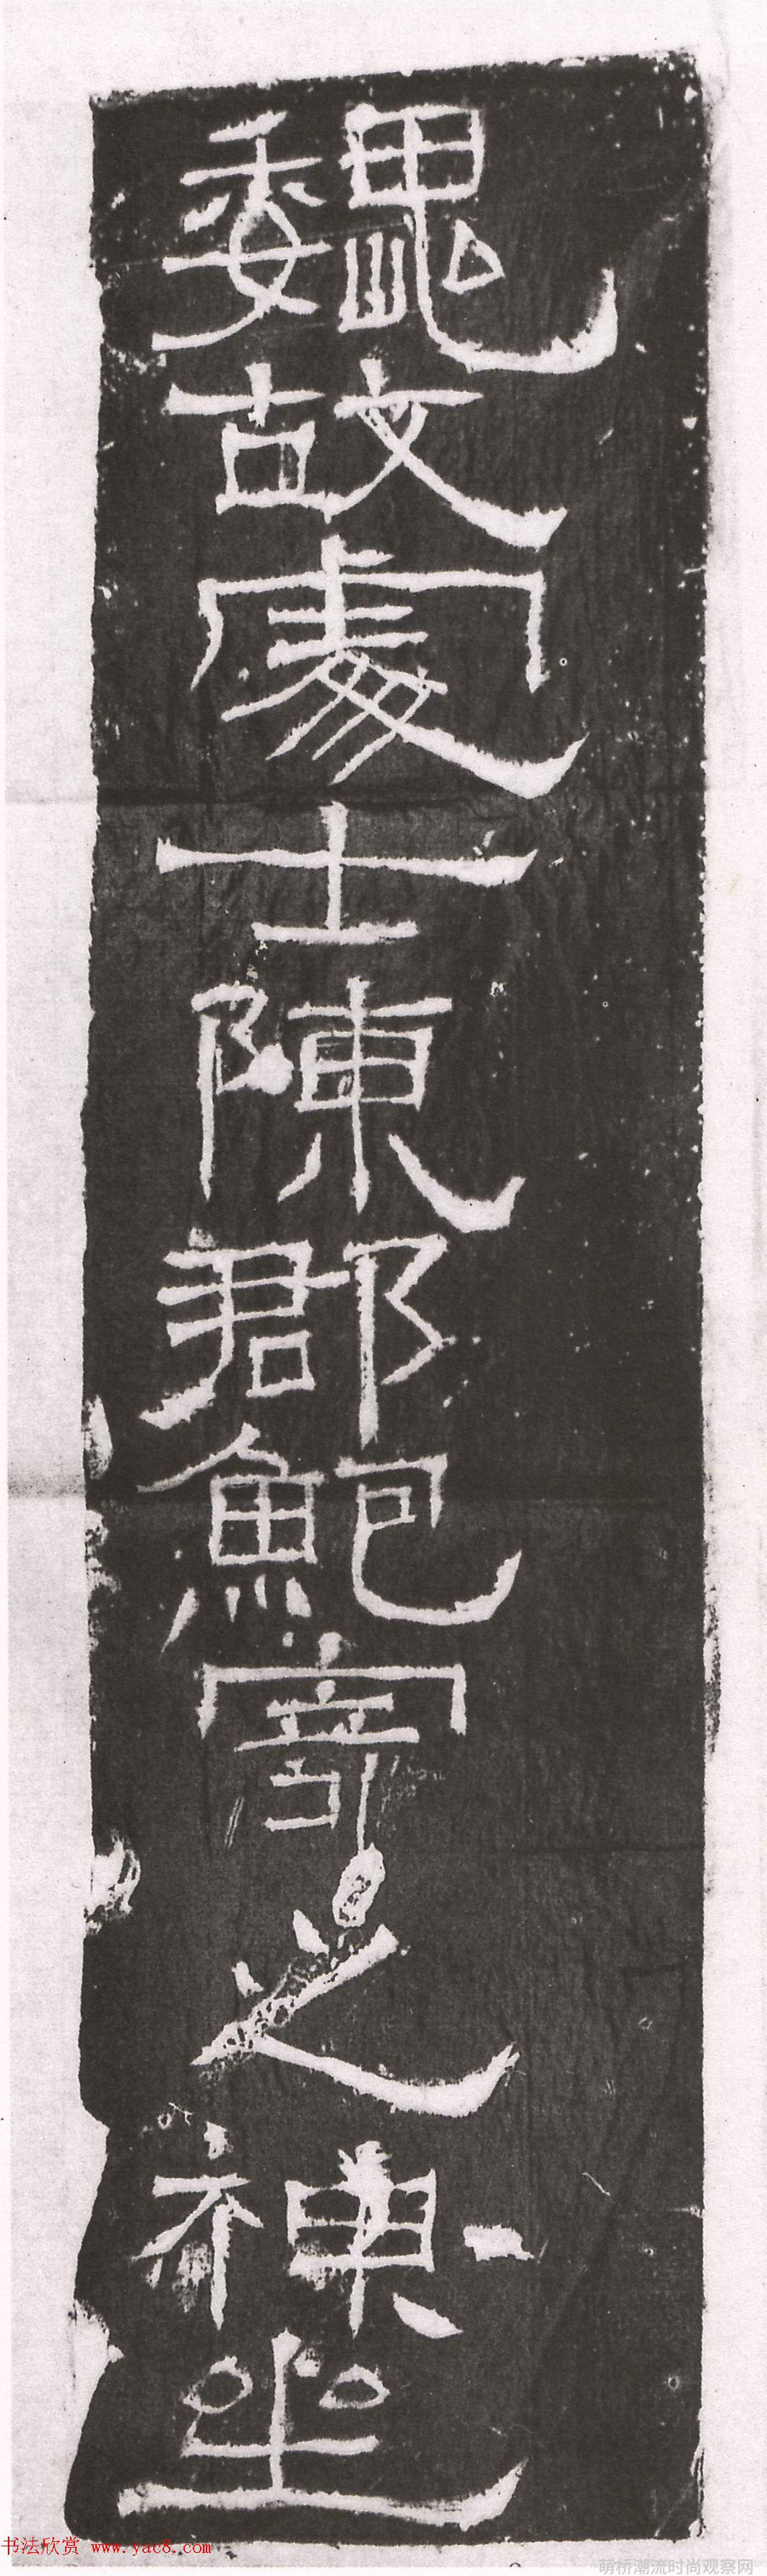 魏故處士陳郡鮑寄之神坐
书法欣赏 www.yac8.com
萌桥潮流时尚观察网